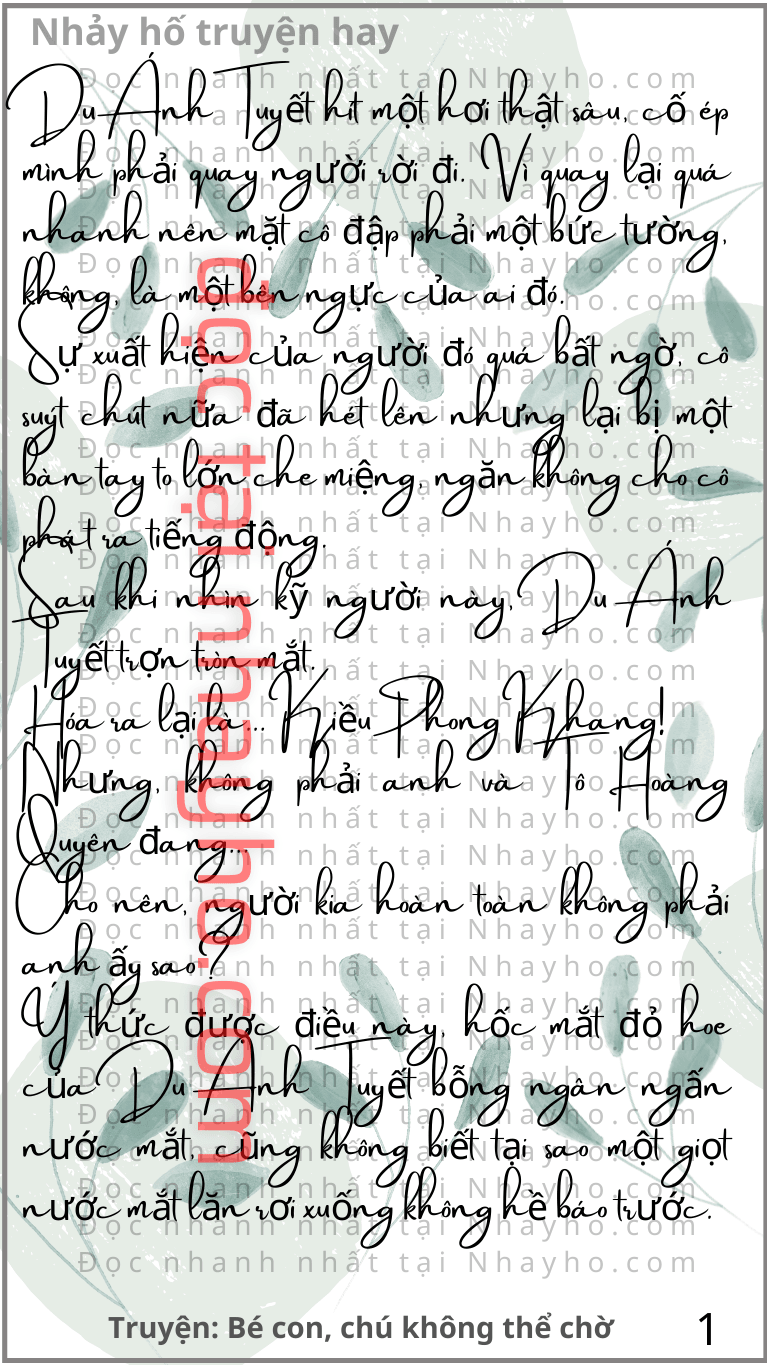 Nhảy hố truyện hay
Du Ánh Tuyết hít một hơi thật sâu, cố ép
mình phải quay người rời đi. Vì quay lại quá
nhanh nên mặt cô đập phải một bức tường,
không, là một bên ngực của ai đó.
Sự xuất hiện của người đó quá bất ngờ, cô
suýt chút nữa đã hét lên nhưng lại bị một
bàn tay to lớn che miệng, ngăn không cho cô
phát ra tiếng động.
Sau khi nhìn kỹ người này, Du Ánh
Tuyết trợn tròn mắt.
Hóa ra lại là... Kiều Phong Khang!
Nhưng, không phải anh và Tô Hoàng
Quyên đang...
Cho nên, người kia hoàn toàn không phải
anh ấy sao?
Ý thức được điều này, hốc mắt đỏ hoe
của Du Ánh Tuyết bỗng ngân ngấn
nước mắt, cũng không biết tại sao một giọt
nước mắt lăn rơi xuống không hề báo trước.
đọc tại nhayho.com
Đọc nhanh nhất tại Nhayho.com
Truyện: Bé con, chú không thể chờ
1